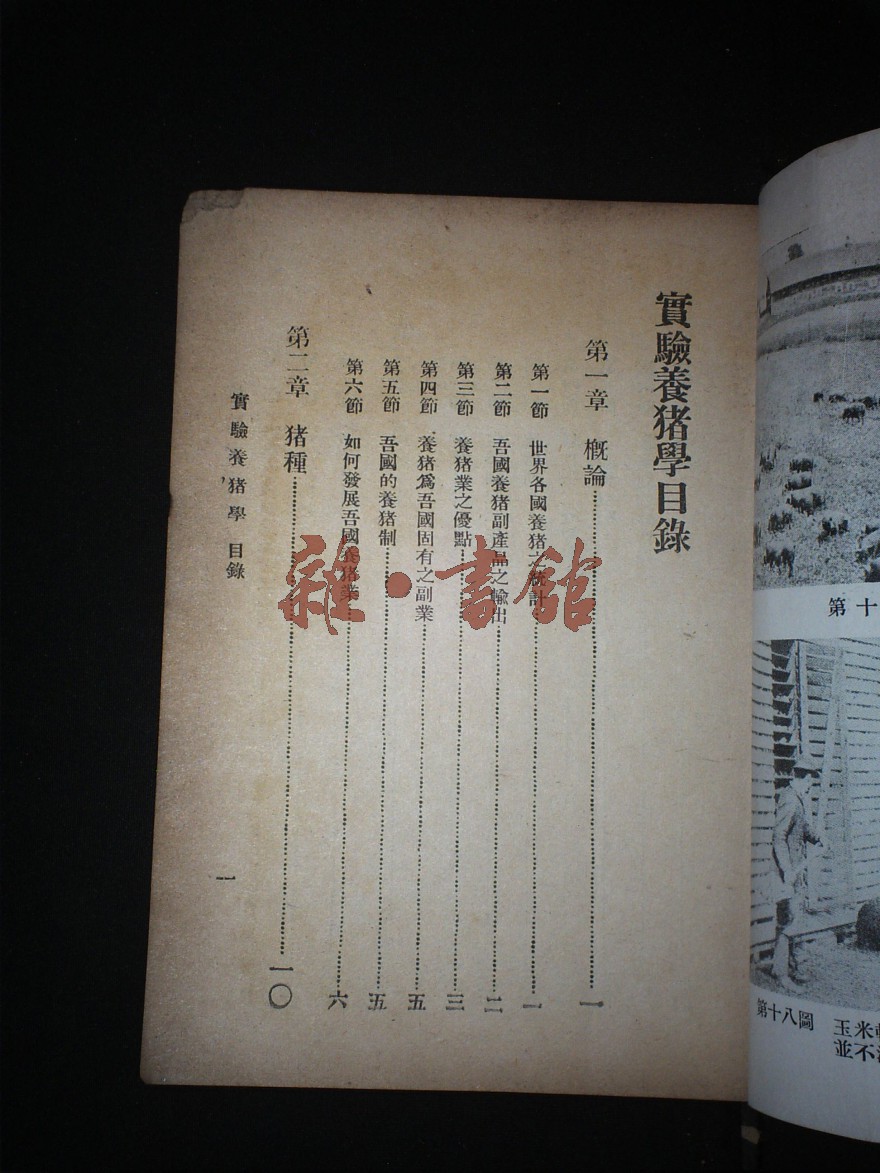 實驗養猪學目錄
第一章 概論…………一
第一節 世界各國養猪之統計…………一
第二節 吾國養猪副產品之輸出…………二
第三節 養猪業之優點…………三
第四節 養猪爲吾國固有之副業…………五
第五節 吾國的養猪制…………五
第六節 如何發展吾國養猪業…………六
第二章 猪種…………一〇
實驗養猪學 目錄
一
雜·書館
第十
第十八圖
玉米
並不